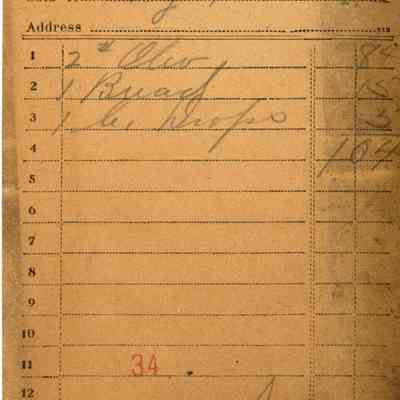 Address
1 2 # Oleo 84
2 1 Bread 15
3 1 Drops 5
4 104
5
6
7
8
9
10
11 34
12